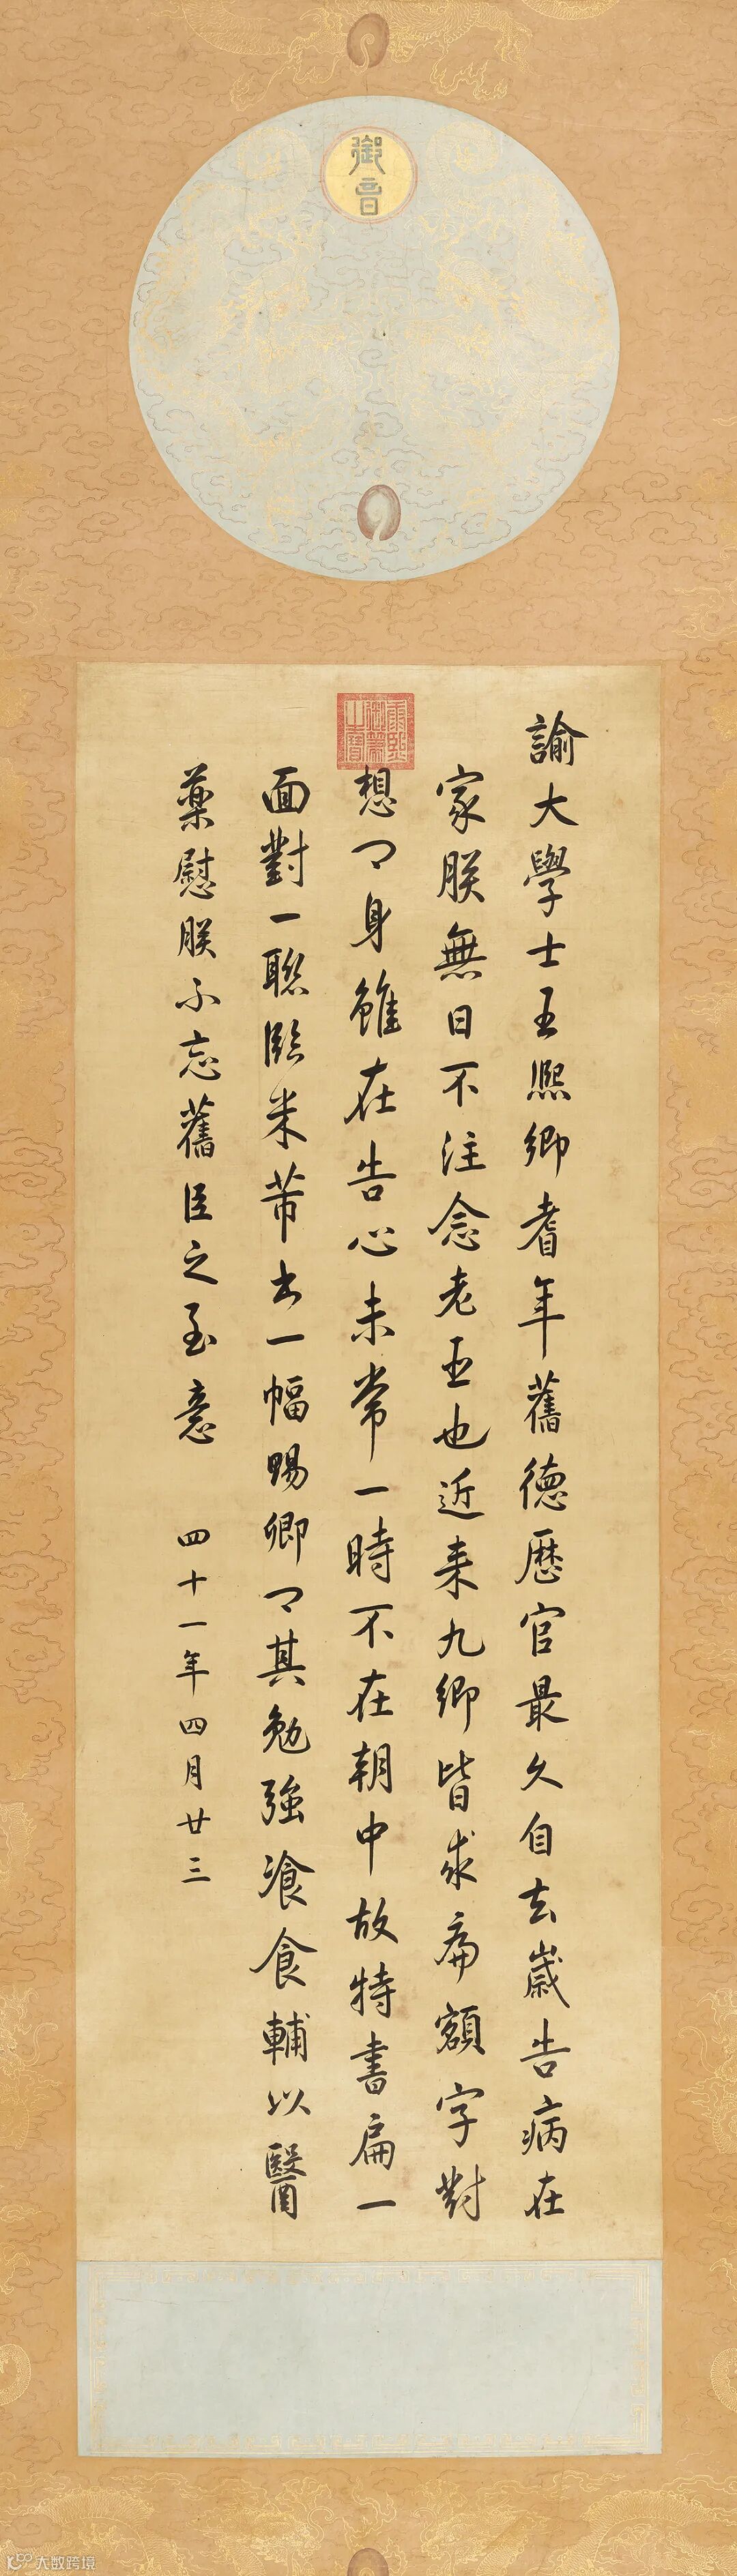 御音
康熙御筆之寶
諭大學士王熙卿耆年舊德歷官最久自去歲告病在
家朕無日不注念老臣也近来九卿皆求扁額字對
想卿身雖在告心未常一時不在朝中故特書扁一
面對一聯臨米芾書一幅賜卿卿其勉強飡食輔以醫
藥慰朕不忘舊臣之至意 四十一年四月廿三
大数跨境